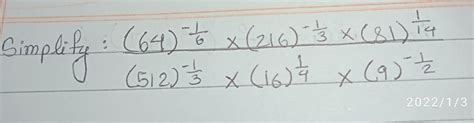 Simplify : (64)^{-1/6} × (216)^{-1/3} × (81)^{1/14}
(512)^{-1/3} × (16)^{1/4} × (9)^{-1/2}
2022/1/3